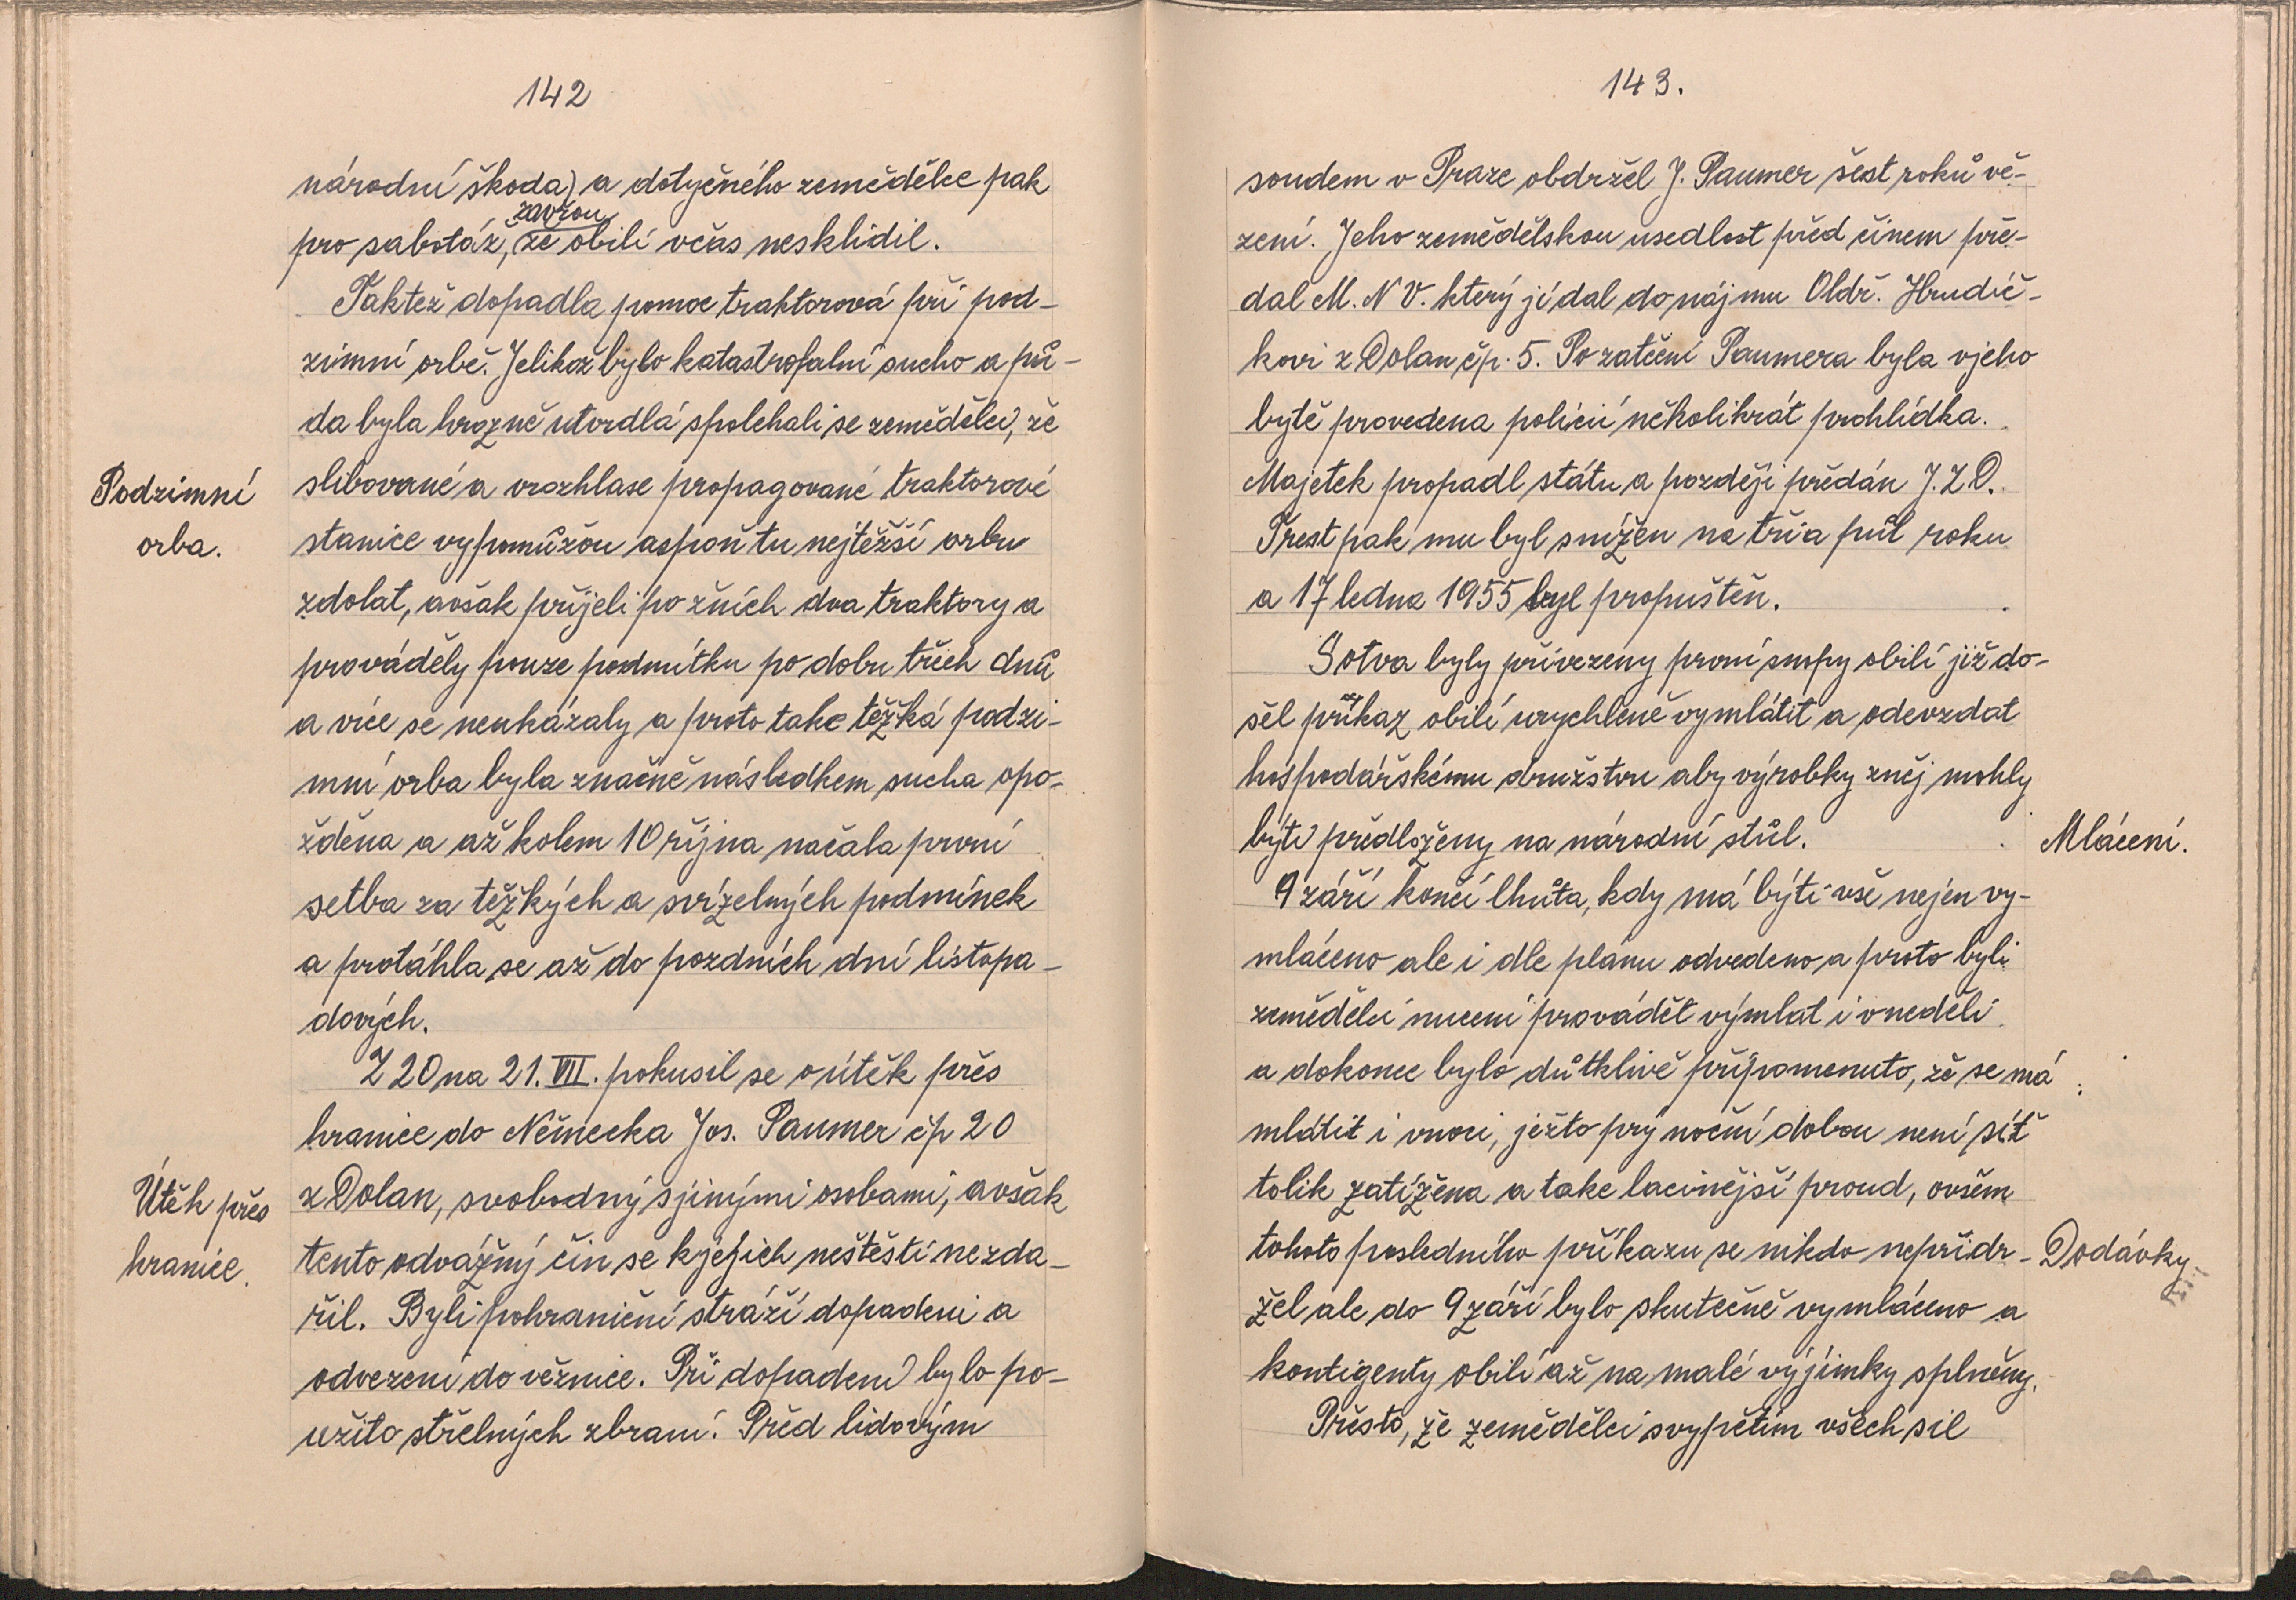 142
národní škoda) a dotyčného zemědělce pak
zavřou
pro sabotáž, že obilí včas nesklidil.
Taktež dopadla pomoc traktorová při pod-
zimní orbě. Jelikož bylo katastrofalní sucho a pů-
da byla hrozně utvrdlá spolehali se zemědělci, že
Podzimní
orba.
slibované a vrozhlase propagované traktorové
stanice vypomůžou aspoň tu nejtěžší orbu
zdolat, avšak přijeli po žních dva traktory a
prováděly pouze podmítku po dobu třech dnů
a více se neukázaly a proto take těžká podzi-
mní orba byla značně následkem sucha opo-
žděna a až kolem 10 října načala první
setba za těžkých a svízelných podmínek
a protáhla se až do pozdních dní listopa-
dových.
Z 20 na 21. VII. pokusil se o útěk přes
hranice do Německa Jos. Paumer čp 20
Útěk přes
hranice.
z Dolan, svobodný sjinými osobami, avšak
tento odvážný čin se kjejich neštěstí nezda-
řil. Byli pohraniční stráží dopadeni a
odvezeni do věznice. Při dopadení bylo po-
užito střelných zbraní. Před lidovým
143.
soudem v Praze obdržel J. Paumer šest roků vě-
zení. Jeho zemědělskou usedlost před činem pře-
dal M. N V. který jí dal do nájmu Oldř. Hrudič-
kovi z Dolan čp. 5. Po zatčení Paumera byla vjeho
bytě provedena policií několikrát prohlídka.
Majetek propadl státu a později předán J. Z D.
Trest pak mu byl snížen na tři a půl roku
a 17 ledna 1955 byl propuštěn.
Sotva byly přivezeny první snopy obilí již do-
šel příkaz obilí urychleně vymlátit a odevzdat
hospodářskému družstvu aby výrobky zněj mohly
býti předloženy na národní stůl.
Mlácení.
9 září končí lhůta, kdy má býti vše nejen vy-
mláceno ale i dle plánu odvedeno a proto byli
zemědělci nuceni provádět výmlat i vneděli
a dokonce bylo důtklivě připomenuto, že se má
mlátit i vnoci, ježto prý noční dobou není síť
tolik zatížena a take lacinější proud, ovšem
tohoto posledního příkazu se nikdo nepřidr-
Dodávky
žel ale do 9 září bylo skutečně vymláceno a
kontigenty obilí až na malé výjimky splněny.
Přesto, že zemědělci svypětím všech sil